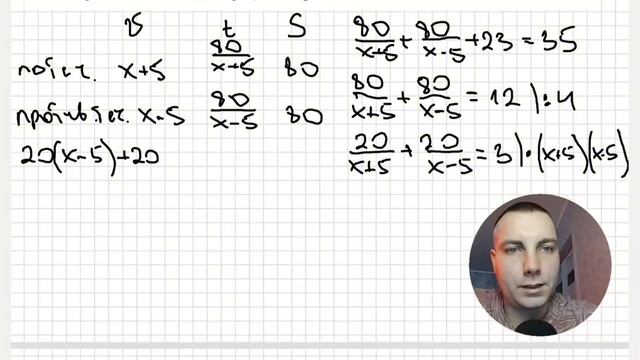 v t S
по теч. x+5 80/(x+5) 80
против теч. x-5 80/(x-5) 80
20(x-5)+20
80/(x+5) + 80/(x-5) + 23 = 35
80/(x+5) + 80/(x-5) = 12 |:4
20/(x+5) + 20/(x-5) = 3 |·(x+5)(x-5)